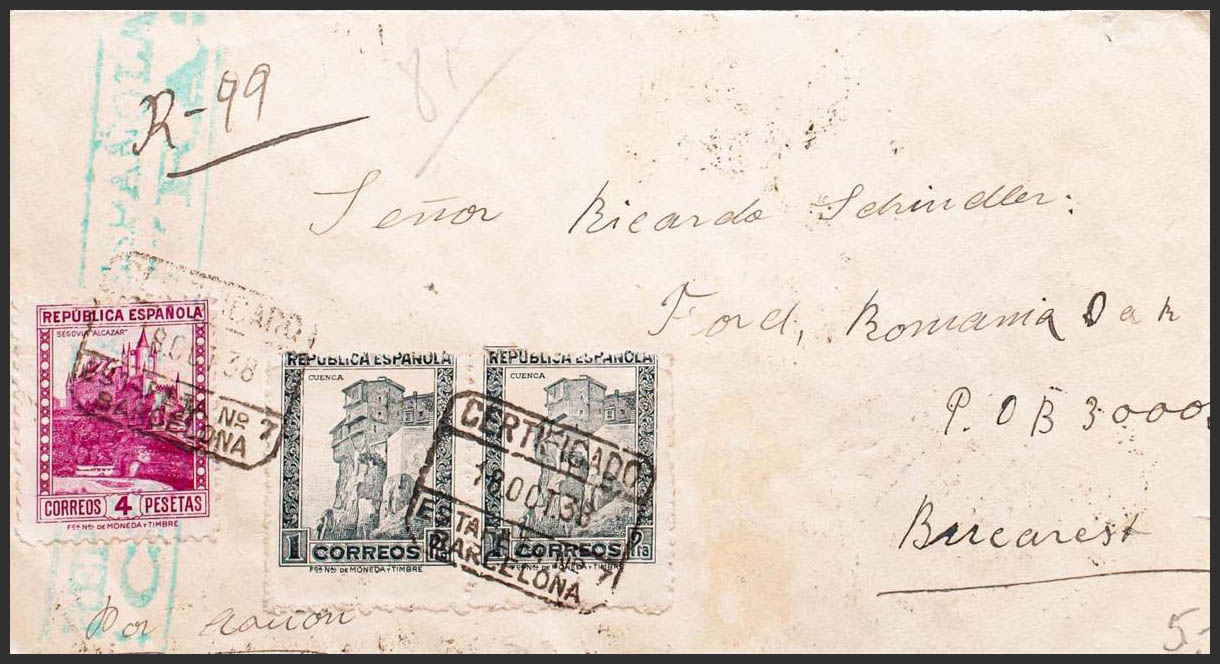 R-99
Señor Ricardo Schindler.
Ford, Romania
P.O B 3000
Bucarest
REPÚBLICA ESPAÑOLA
SEGOVIA "ALCAZAR"
CORREOS 4 PESETAS
Fca Nal DE MONEDA Y TIMBRE
18 OCT. 38
Nº 7
BARCELONA
REPÚBLICA ESPAÑOLA
CUENCA
1 CORREOS Pta
Fca Nal DE MONEDA Y TIMBRE
REPÚBLICA ESPAÑOLA
CUENCA
1 CORREOS Pta
Fca Nal DE MONEDA Y TIMBRE
CERTIFICADO
18 OCT. 38
ESTAFETA Nº 7
BARCELONA
Por avion